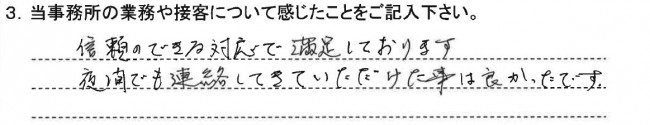 3. 当事務所の業務や接客について感じたことをご記入下さい。
信頼のできる対応で満足しております
夜間でも連絡してきていただけた事は良かったです。